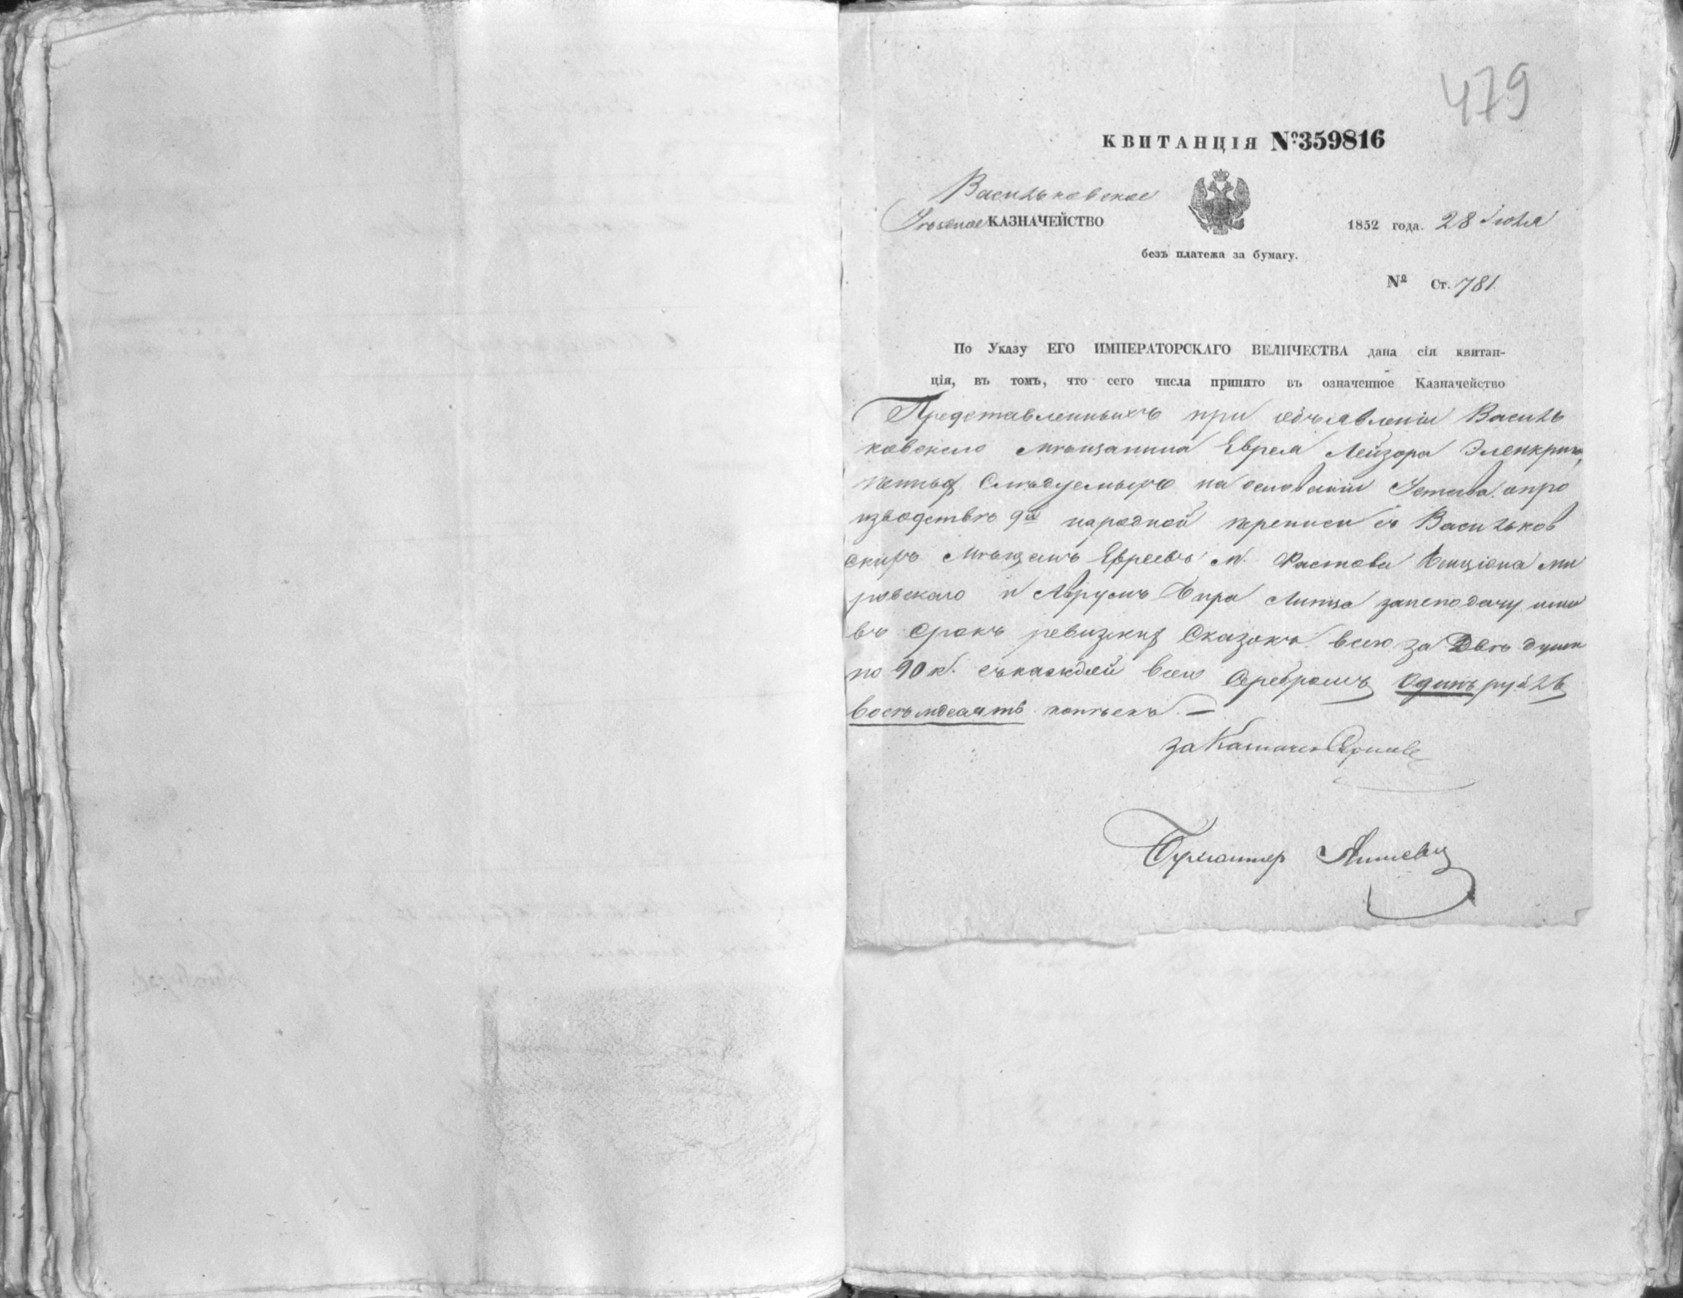 479
КВИТАНЦІЯ №359816
Васильковское
Уѣзное КАЗНАЧЕЙСТВО
1852 года. 28 Іюля
безъ платежа за бумагу.
№ Ст. 781.
По Указу ЕГО ИМПЕРАТОРСКАГО ВЕЛИЧЕСТВА дана сія квитан-
ція, въ томъ, что сего числа принято въ означенное Казначейство
Представленныхъ при объявленіи Василь
ковскаго мѣщанина Еврея Лейзора
Слѣдуемыхъ на основаніи Устава о про
изводствѣ 9й народной переписи съ Васильков
скихъ Мѣщанъ Евреевъ м. Фастова Бенціона Ми
ровскаго и Аврумъ Бера Липца за неподачу ими
въ срокъ ревизкихъ Сказокъ всего за Двѣ души
по 90 к. съ каждой всего Серебромъ Одинъ рубль
восемьдесятъ копѣекъ. —
за Казначея
Бухгалтер